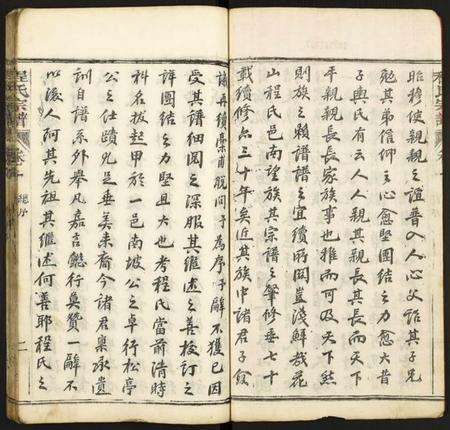 程氏宗譜
卷一
昭穆使親親之誼普入人心父詔其子兄
勉其弟信仰之心愈堅團結之力愈大昔
子輿氏有云人人親其親長其長而天下
平親親長長家族事也推而可及天下然
則族之賴譜譜之宜續所關豈淺鮮哉花
山程氏邑南望族其宗譜之肇修垂七十
載續修亦三十年矣近其族中諸君子僉
議再續稾甫脫問予為序予辭不獲已因
受其譜細閱之深服其繼述之善校訂之
詳團結之力堅且大也考程氏當前清時
科名拔起甲於一邑南坡公之卓行松亭
公之仕蹟允足垂美來裔今諸君稟承遺
訓自譜系外舉凡嘉言懿行奠贊一辭不
以後人阿其先祖其繼述何善耶程氏之
程氏宗譜
卷一
總序
二